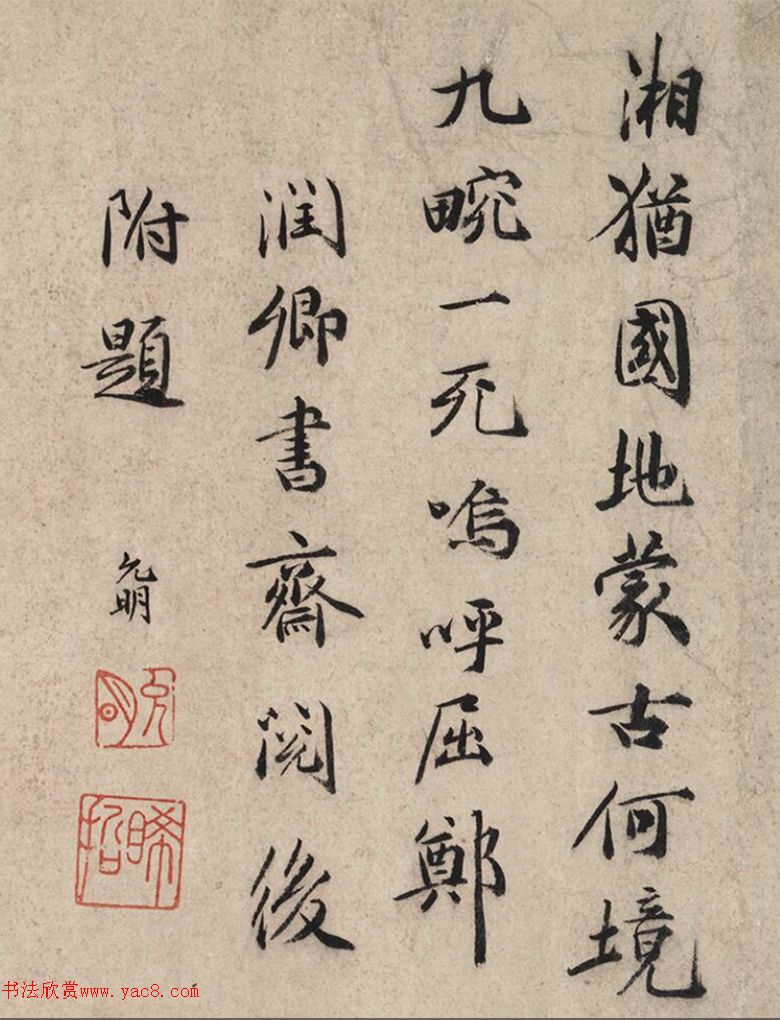 湘猶國地蒙古何境
九畹一死嗚呼屈鄭
潤卿書齋閱後
附題
允明
允明
晞哲
书法欣赏www.yac8.com